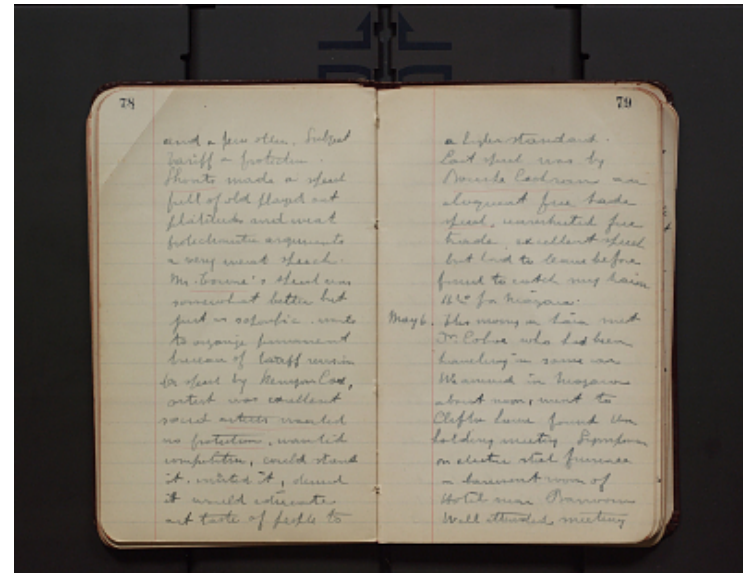 78
and a few others. Subject
Tariff & protection.
Shonts made a speech
full of old played out
platitudes and weak
protectionistic arguments
a very weak speech.
Mr. Cowne's speech was
somewhat better but
just as soporific. wants
to organize permanent
bureau of tariff revision
speech by Kenyon Cox,
artist was excellent
said artists wanted
no protection, wanted
competition, could stand
it, invited it, desired
it would educate
art taste of people to
79
a higher standard.
Last speech was by
Bourke Cochran an
eloquent free trade
speech, unrestricted free
trade, excellent speech
but had to leave before
finish to catch my train
for Niagara.
May 6. This morning in train met
Dr. who had been
traveling in same car
We arrived in Niagara
about noon, went to
Clifton house found them
holding meeting Symposium
on electric steel furnaces
in basement room of
Hotel near Barroom
Well attended meeting